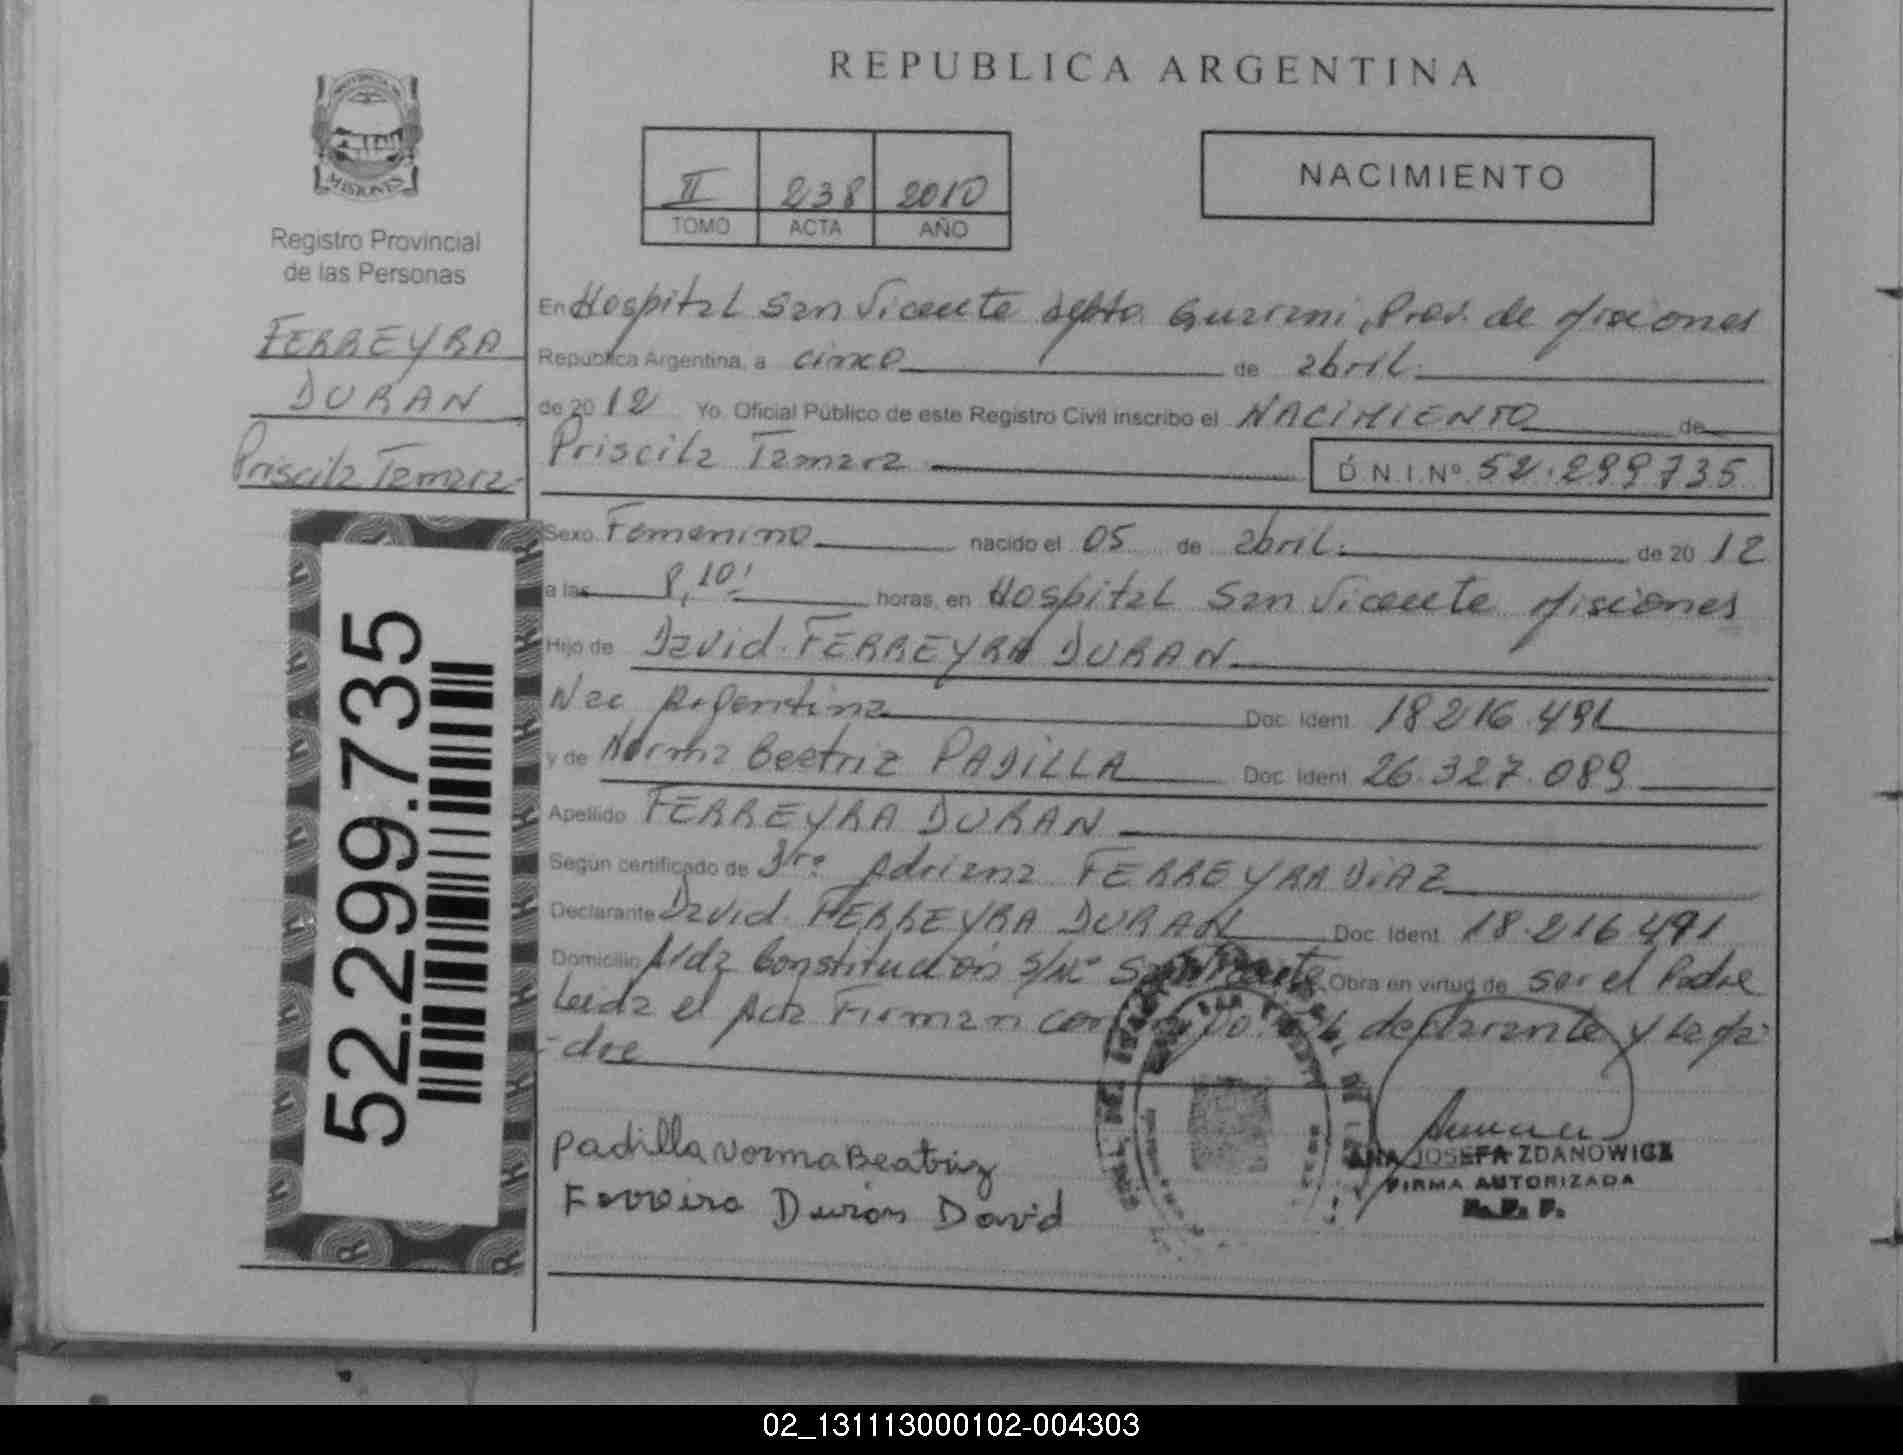 REPUBLICA ARGENTINA
PROVINCIA DE
MISIONES
II 238 2010
TOMO ACTA AÑO
NACIMIENTO
Registro Provincial
de las Personas
FERREYRA
DURAN
Priscila Tamara
En Hospital San Vicente Depto. Guarani, Prov. de Misiones
Republica Argentina, a cinco de abril.
de 2012 Yo. Oficial Público de este Registro Civil inscribo el NACIMIENTO de
Priscila Tamara D.N.I.Nº 52.299735
Sexo Femenino nacido el 05 de abril. de 2012
a las 8,10' horas, en Hospital San Vicente Misiones
Hijo de David FERREYRA DURAN
Nac Argentina Doc. Ident. 18216.491
y de Norma Beatriz PADILLA Doc. Ident. 26.327.089
Apellido FERREYRA DURAN
Según certificado de Dra. Adriana FERREYRA DIAZ
Declarante David FERREYRA DURAN Doc. Ident. 18.216491
Domicilio Avda Constitución S/Nº San Vicente Obra en virtud de ser el Padre
Leida el Acta Firman declarante y La Ma-
-dre
52.299.735
Padilla Norma Beatriz
Ferreira Duran David
ANA JOSEFA ZDANOWICZ
FIRMA AUTORIZADA
R. P. P.
02_131113000102-004303